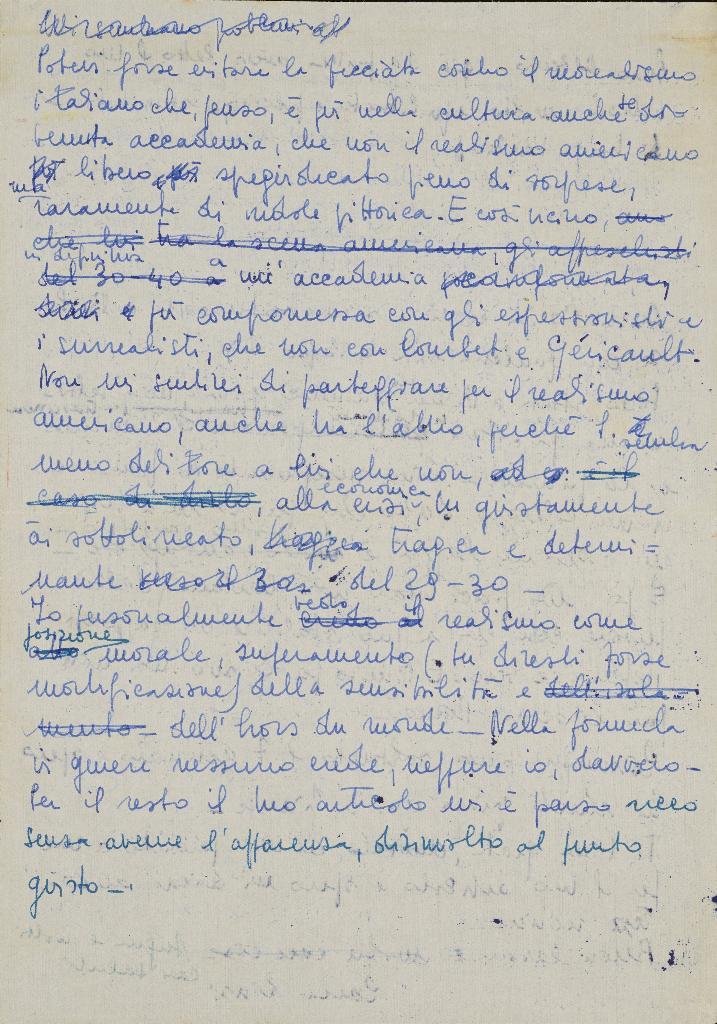 Mi sembrano problemi
Potevi forse evitare la frecciata contro il neorealismo
italiano che, penso, è più nella cultura anche se di-
venuta accademia, che non il realismo americano
ma libero, spregiudicato pieno di sorprese,
raramente di indole pittorica. E così vicino,
che, lui tra la scena americana, gli affreschisti
in definitiva
del 30-40 a a un'accademia
più compromessa con gli espressionisti e
i surrealisti, che non con Courbet e Géricault.
Non mi sentirei di parteggiare per il realismo
americano, anche tra l'altro, perché sembra
meno debitore a lui che non, è il
caso di dirlo, alla crisi economica, tu giustamente
ai sottolineato, tragica e determi=
nante verso il 30 del 29-30 —
Io personalmente credo vedo il realismo come
posizione
morale, superamento (tu diresti forse
mortificazione) della sensibilità e dell'isola-
mento - dell'hors du monde — Nella formula
in genere nessuno crede, neppure io, davvero —
Per il resto il tuo articolo mi è parso ricco
senza averne l'apparenza, disinvolto al punto
giusto —.